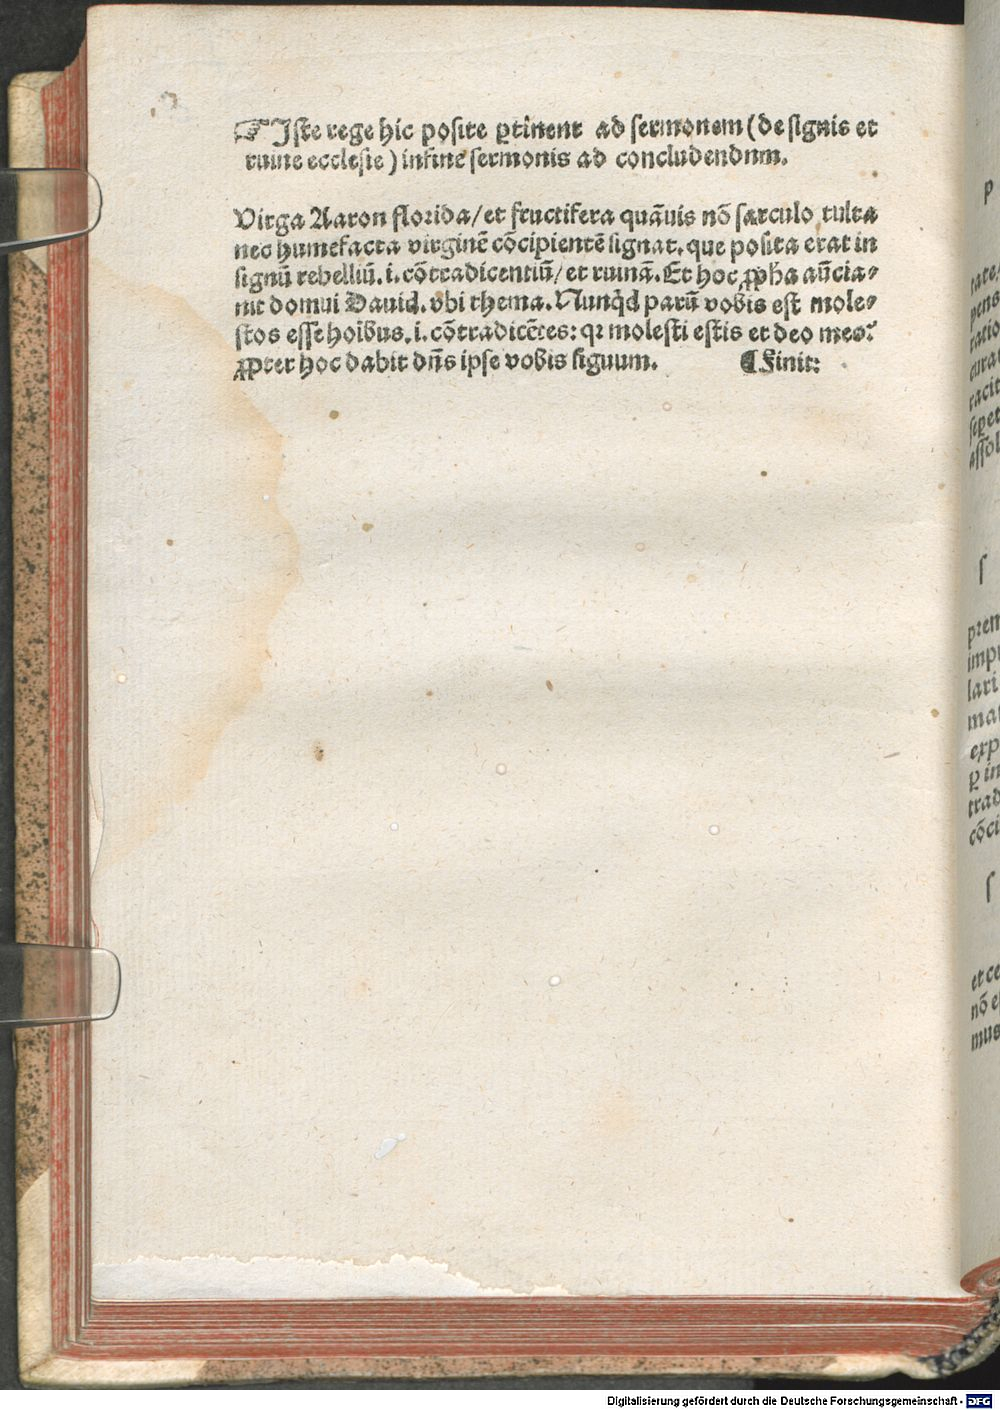 ☞ Iste rege hic posite ꝑtinent ad sermonem (de signis et
ruine ecclesie) in fine sermonis ad concludendum.
Virga Aaron florida/ et fructifera quāuis nō sarculo culta
nec humefacta virginē cōcipientē signat. que posita erat in
signū rebelliū. i. cōtradicentiū/ et ruinā. Et hoc ꝓpha aūcia⸗
uit domui Dauid. vbi thema. Nunqd parū vobis est mole⸗
stos esse hoibus. i. cōtradicētes: qꝛ molesti estis et deo meo?
ꝓpter hoc dabit dn̄s ipse vobis signum. ¶ Finit:
p
pens
ſ
prem
lari
mat
exp
ꝑ in
trad
cōci
ſ
et ce
nō e
mus
Digitalisierung gefördert durch die Deutsche Forschungsgemeinschaft - DFG